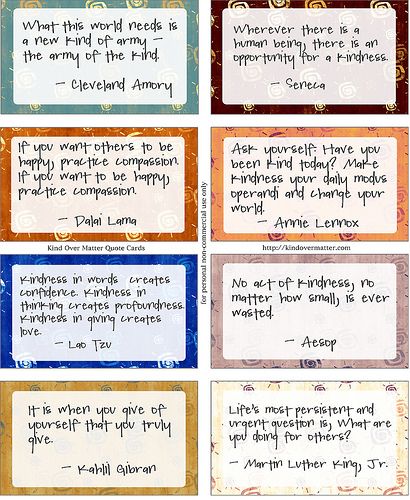 What this world needs is
a new kind of army –
the army of the kind.
– Cleveland Amory
Wherever there is a
human being, there is an
opportunity for a kindness.
– Seneca
If you want others to be
happy, practice compassion.
If you want to be happy,
practice compassion.
– Dalai Lama
Ask yourself: Have you
been kind today? Make
kindness your daily modus
operandi and change your
world.
– Annie Lennox
Kind Over Matter Quote Cards
for personal non-commercial use only
http://kindovermatter.com
Kindness in words creates
confidence. Kindness in
thinking creates profoundness.
Kindness in giving creates
love.
– Lao Tzu
No act of kindness, no
matter how small, is ever
wasted.
– Aesop
It is when you give of
yourself that you truly
give.
– Kahlil Gibran
Life's most persistent and
urgent question is, What are
you doing for others?
– Martin Luther King, Jr.